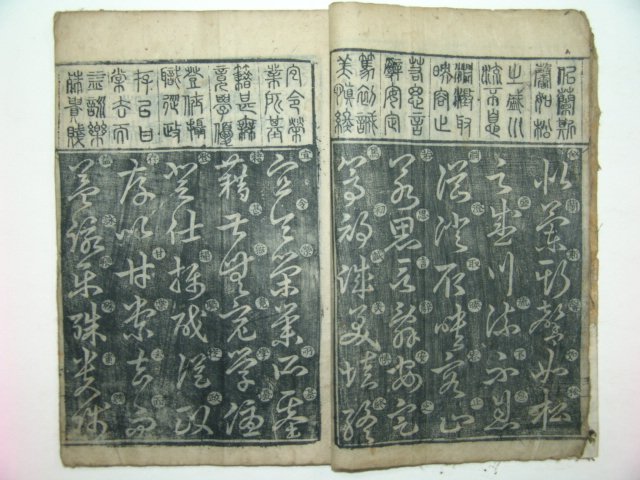 似蘭斯
馨如松
之盛川
流不息
淵澄取
暎容止
若思言
辭安定
篤初誠
美慎終
似蘭斯馨如松
之盛川流不息
淵澄取暎容止
若思言辭安定
篤初誠美慎終
宜令榮
業所基
籍甚無
竟學優
登仕攝
職從政
存以甘
棠去而
益詠樂
殊貴賤
宜令榮業所基
籍甚無竟學優
登仕攝職從政
存以甘棠去而
益詠樂殊貴賤